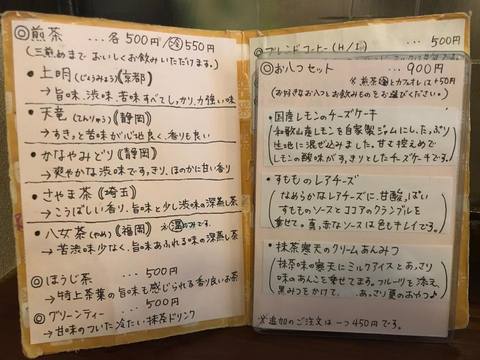 ◎煎茶 ... 各500円/冷550円
(三煎めまで おいしくお飲みいただけます。)
・上明(じょうみょう)《京都》
→旨味、渋味、苦味すべてしっかり、力強い味
・天竜(てんりゅう)《静岡》
→すきっと苦味が心地良く、香りも良い
・かなやみどり《静岡》
→爽やかな渋味ですっきり、ほのかに甘い香り
・さやま茶《埼玉》
→こうばしい香り、旨味と少し渋味の深蒸し茶
・八女茶(やめ)《福岡》※温のみです。
→苦渋味少なく、旨味あふれる味の深蒸し茶
◎ほうじ茶 ... 500円
→特上茶葉の旨味も感じられる香り良いお茶
◎グリーンティー ... 500円
→甘味のついた冷たい抹茶ドリンク
◎ブレンドコーヒー(H/I) ... 500円
◎お八つセット ... 900円
※煎茶冷とカフェオレは+50円
(お好きなお八つとお飲みものをお選びください。)
・国産レモンのチーズケーキ
和歌山産レモンを自家製ジャムにし、たっぷり
生地に混ぜ込みました。甘さ控えめで
レモンの酸味がすっきりとしたチーズケーキです。
・すもものレアチーズ
なめらかなレアチーズに、甘酸っぱい
すもものソースとココアのクランブルを
乗せて。真っ赤なソースは色もキレイです。
・抹茶寒天のクリームあんみつ
抹茶味の寒天にミルクアイスとあっさり
味のあんこを乗せてます。フルーツも添え、
黒みつをかけて、 ...あっさり夏のおやつ♪
※追加のご注文は一つ450円です。